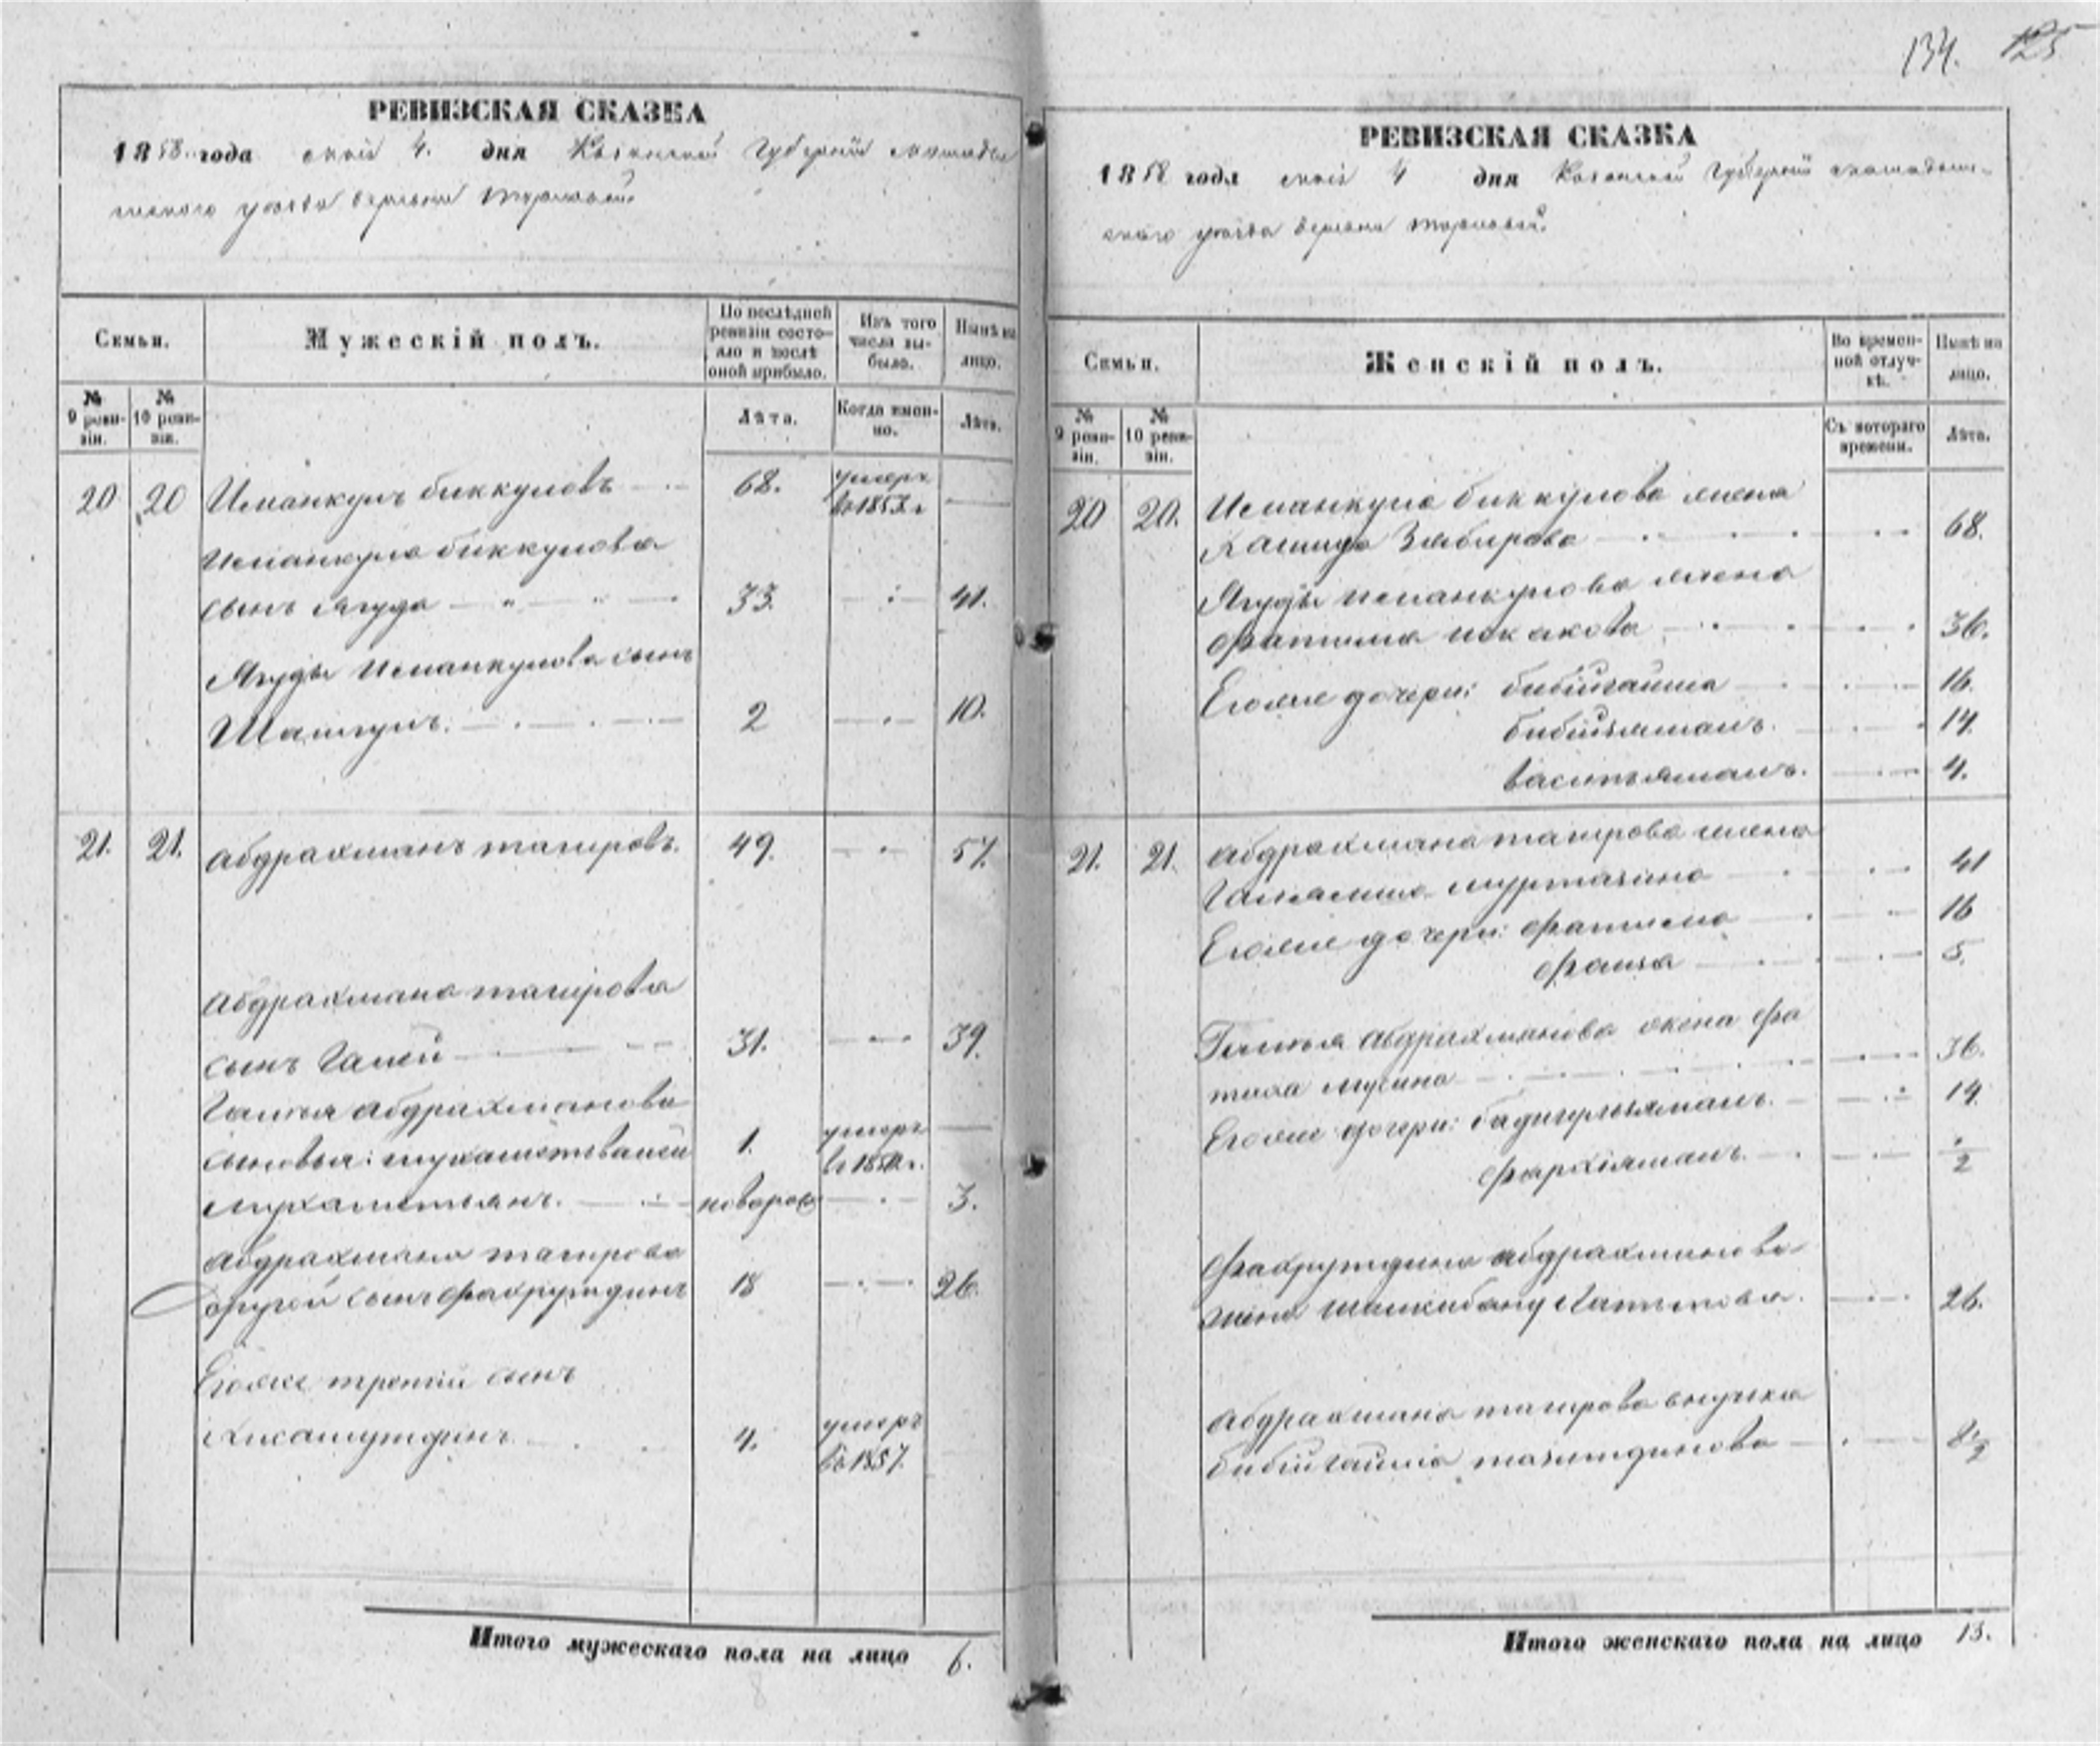 134. 125
РЕВИЗСКАЯ СКАЗКА
1858 года маія 4. дня Казанской Губерніи мамады-
шскаго уезда деревни
Семьи.
Мужескій полъ.
По послѣдней ревизіи состояло и послѣ оной прибыло.
Изъ того числа выбыло.
Нынѣ на лицо.
№ 9 ревизіи.
№ 10 ревизіи.
Лѣта.
Когда именно.
Лѣта.
20 20 Исманкулъ биккуловъ 68. умеръ в 1853 г
Исманкула биккулова
сынъ Ягуда 33. 41.
Ягуды Исманкулова сынъ
Шаигулъ. 2 10.
21. 21. абдрахманъ тагировъ. 49. 57.
абдрахмана тагирова
сынъ Галей 31. 39.
Галея абдрахманова
сыновья: мухаметвалей 1. умеръ
мухаметзянъ. новорож 3.
абдрахмана тагирова
другой сынъ фахрутдинъ 18 26.
Егоже третій сынъ
Хисамутдинъ 4. умеръ
въ 1857.
Итого мужескаго пола на лицо 6.
РЕВИЗСКАЯ СКАЗКА
1858 года маія 4 дня Казанской Губерніи мамадыш-
скаго уезда деревни
Семьи.
Женскій полъ.
Во временной отлучкѣ.
Нынѣ на лицо.
№ 9 ревизіи.
№ 10 ревизіи.
Съ котораго времени.
Лѣта.
20 20. Исманкула биккулова жена
Зябирова 68.
Ягуды исманкулова жена
фатима искакова 36.
Егоже дочери: бибигайша 16.
бибизямалъ. 14.
васигзямалъ. 4.
21. 21. абдрахмана тагирова жена
муртазина 41
Егоже дочери: фатима 16
фаиза 5.
Галея абдрахманова жена фа
тиха мусина 36.
Егоже дочери: бадигулзямалъ. 14
фархизямалъ. 1/2
Фахрутдина абдрахманова
жена Шамсибану Латыпова. 26.
абдрахмана тагирова внучка
бибигайша тазитдинова 8 1/2
Итого женскаго пола на лицо 13.